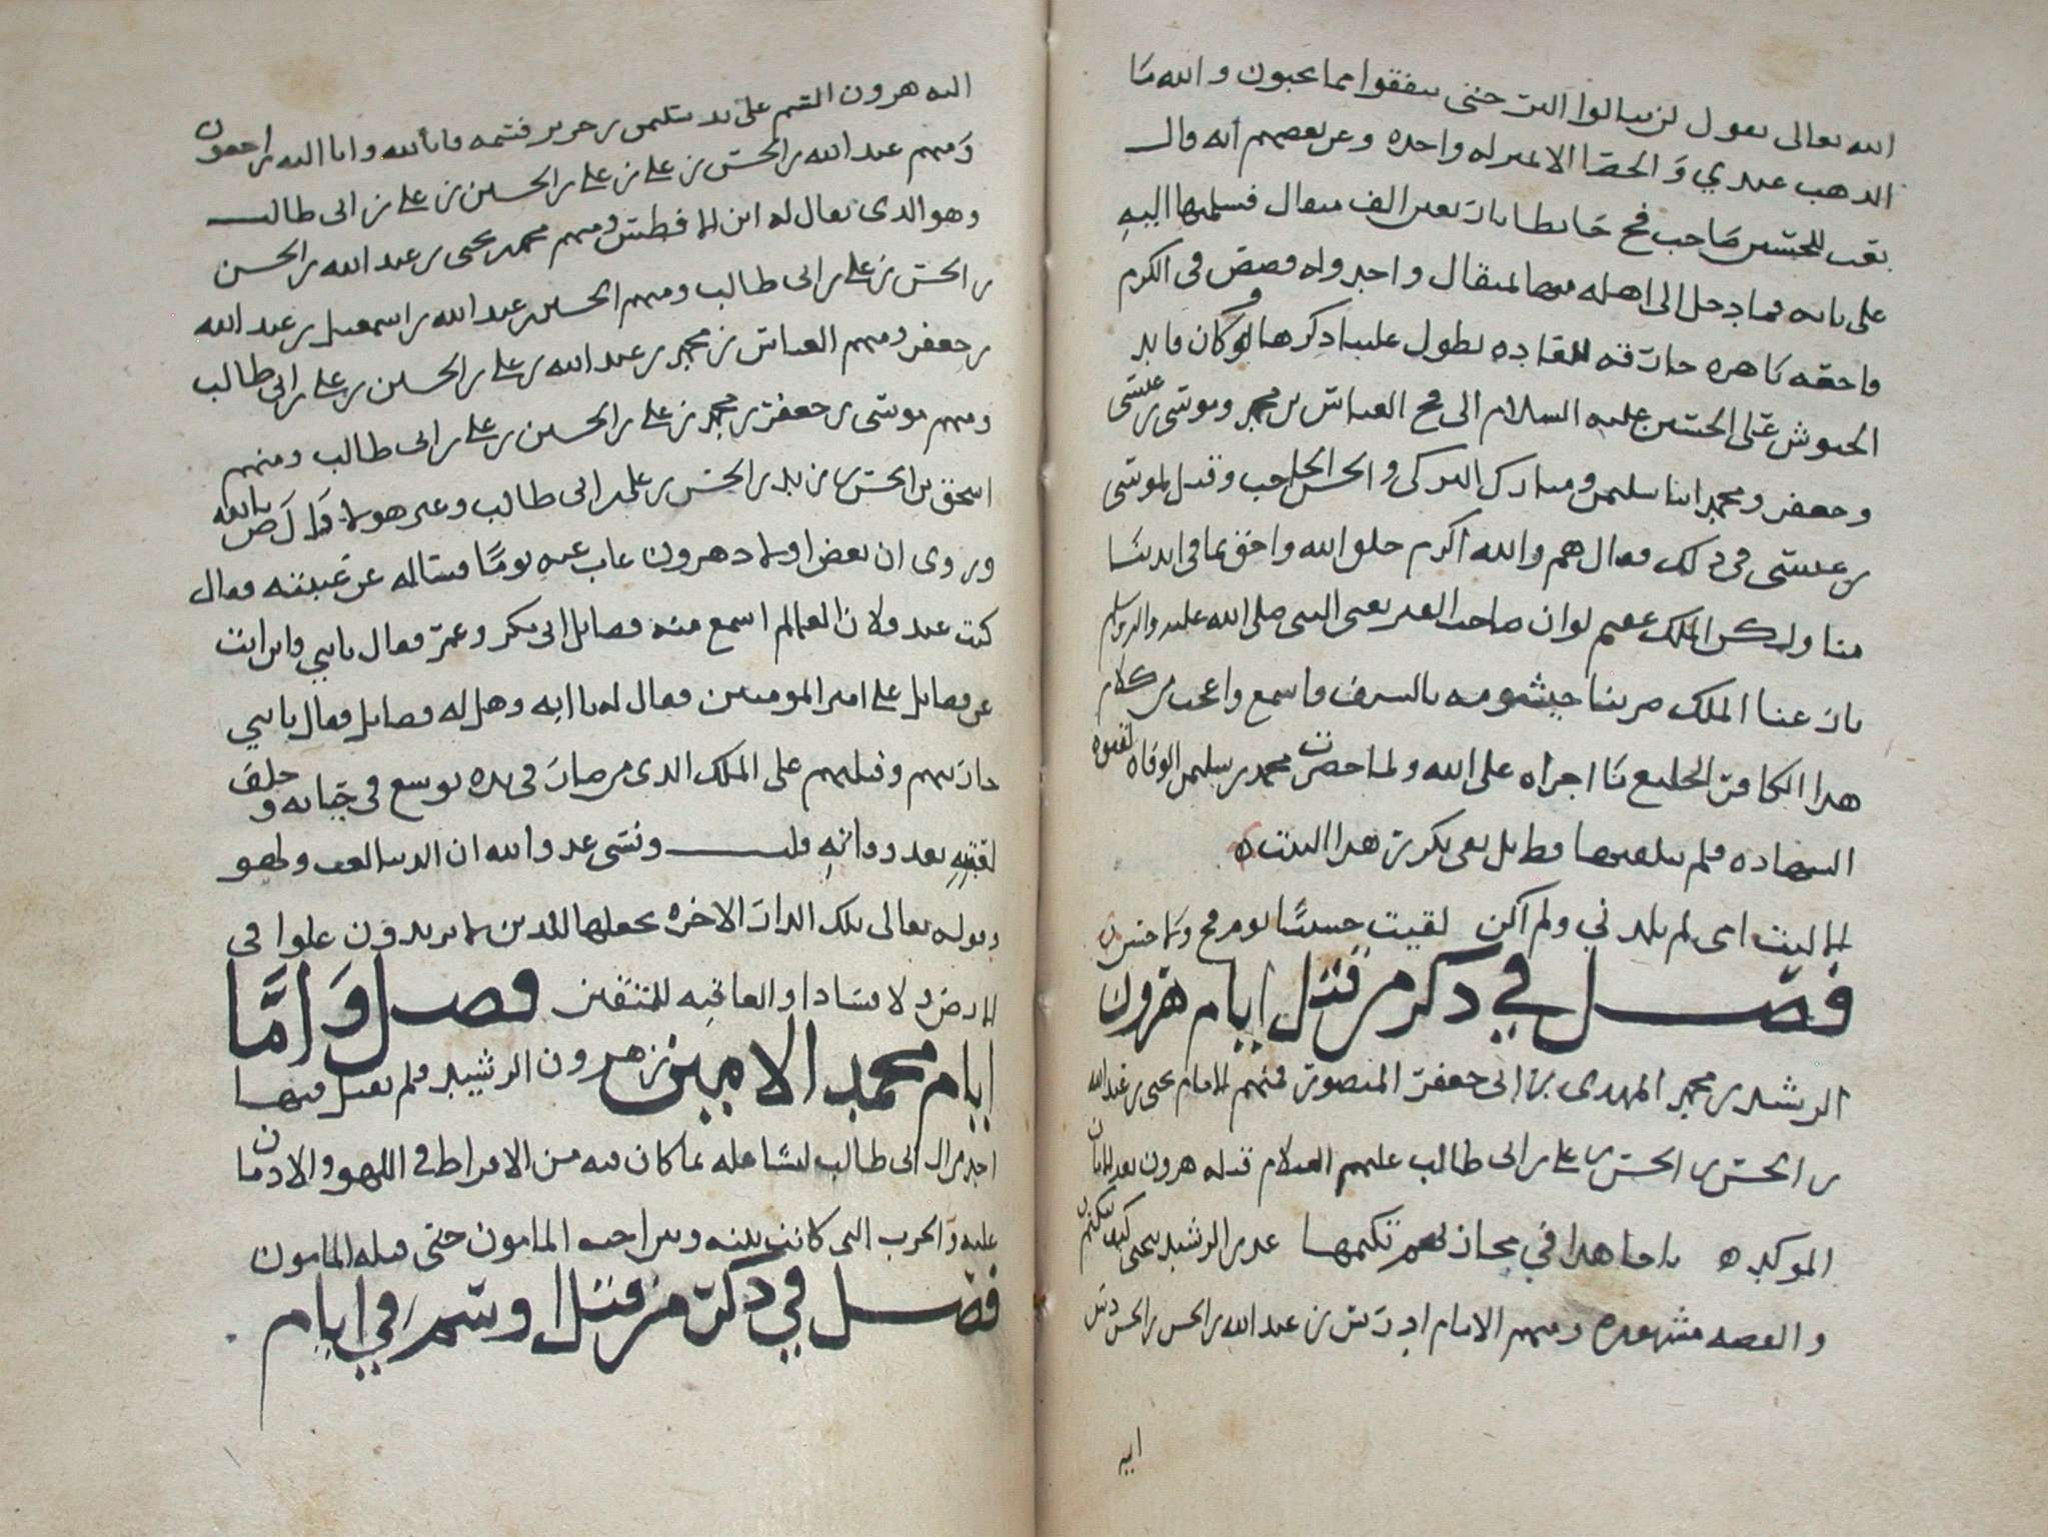 الله تعالى يقول لن تنالوا البر حتى تنفقوا مما تحبون والله ما
الذهب عندي والحصا الا بمنزله واحده وعن بعضهم انه قال
بعت للحسين صاحب فخ حائطا باربعين الف مثقال فسلمها اليه
على بابه فما دخل الى اهله منها مثقال واحد وله قصص في الكرم
كان قائد
الجيوش على الحسين عليه السلام الى فخ العباس بن محمد وموسى بن عيسى
وجعفر ومحمد ابنا سليمن ومبارك التركي والحسن الحاجب وقيل لموسى
بن عيسى في ذلك فقال هم والله اكرم خلق الله واحق بما في ايدينا
منا ولكن الملك عقيم لو ان صاحب القبر يعني النبي صلى الله عليه واله وسلم
نازعنا الملك ضربنا خيشومه بالسيف فاسمع واعجب من كلام
هذا الكافر الخليع ما اجراه على الله ولما حضرت محمد بن سليمن الوفاه لقنوه
الشهاده فلم يتلقنها وطل يعني يكرر هذا البيت
الا ليت امي لم تلدني ولم اكن لقيت حسينا يوم فخ ولا حسن
فصل في ذكر من قتل ايام هرون
الرشيد بن محمد المهدي بن ابي جعفر المنصور فمنهم الامام يحيى بن عبد الله
بن الحسن بن الحسن بن علي بن ابي طالب عليهم السلام قتله هرون بعد الايمان
الموكده يا جاحدا في مساويهم يكتمها غدر الرشيد بيحيى كيف ينكتم
والقصه مشهوره ومنهم الامام ادريس بن عبد الله بن الحسن بن الحسن دس
اليه
اليه هرون السم على يد سليمن بن حرير فسمه فانا لله وانا اليه راجعون
ومنهم عبد الله بن الحسن بن علي بن علي بن الحسين بن علي بن ابي طالب
وهو الذي يقال له ابن الافطس ومنهم محمد بن يحيى بن عبد الله بن الحسن
بن الحسن بن علي بن ابي طالب ومنهم الحسين بن عبد الله بن اسمعيل بن عبد الله
بن جعفر ومنهم العباس بن محمد بن عبد الله بن علي بن الحسين بن علي بن ابي طالب
ومنهم موسى بن جعفر بن محمد بن علي بن الحسين بن علي بن ابي طالب ومنهم
اسحق بن الحسن بن زيد بن الحسن بن علي بن ابي طالب وغير هولا
وروي ان بعض اولاد هرون غاب عنه يوما فساله عن غيبته فقال
كنت عند فلان العالم اسمع منه فضايل ابي بكر وعمر فقال يا بني واين انت
عن فضايل علي امير المومنين فقال له يا ابه وهل له فضايل فقال يا بني
حاربهم وقتلهم على الملك الذي من صار في يده توسع في حياته وخلف
لعقبه بعد وفاته قلت ونسي عدو الله ان الدنيا لعب ولهو
وقوله تعالى تلك الدار الاخره نجعلها للذين لا يريدون علوا في
الارض ولا فسادا والعاقبه للمتقين فصل واما
ايام محمد الامين بن هرون الرشيد فلم يقتل فيها
احد من ال ابي طالب لتشاغله بما كان فيه من الافراط في اللهو والادمان
عليه والحرب التي كانت بينه وبين اخيه المامون حتى قتله المامون
فصل في ذكر من قتل او سم في ايام